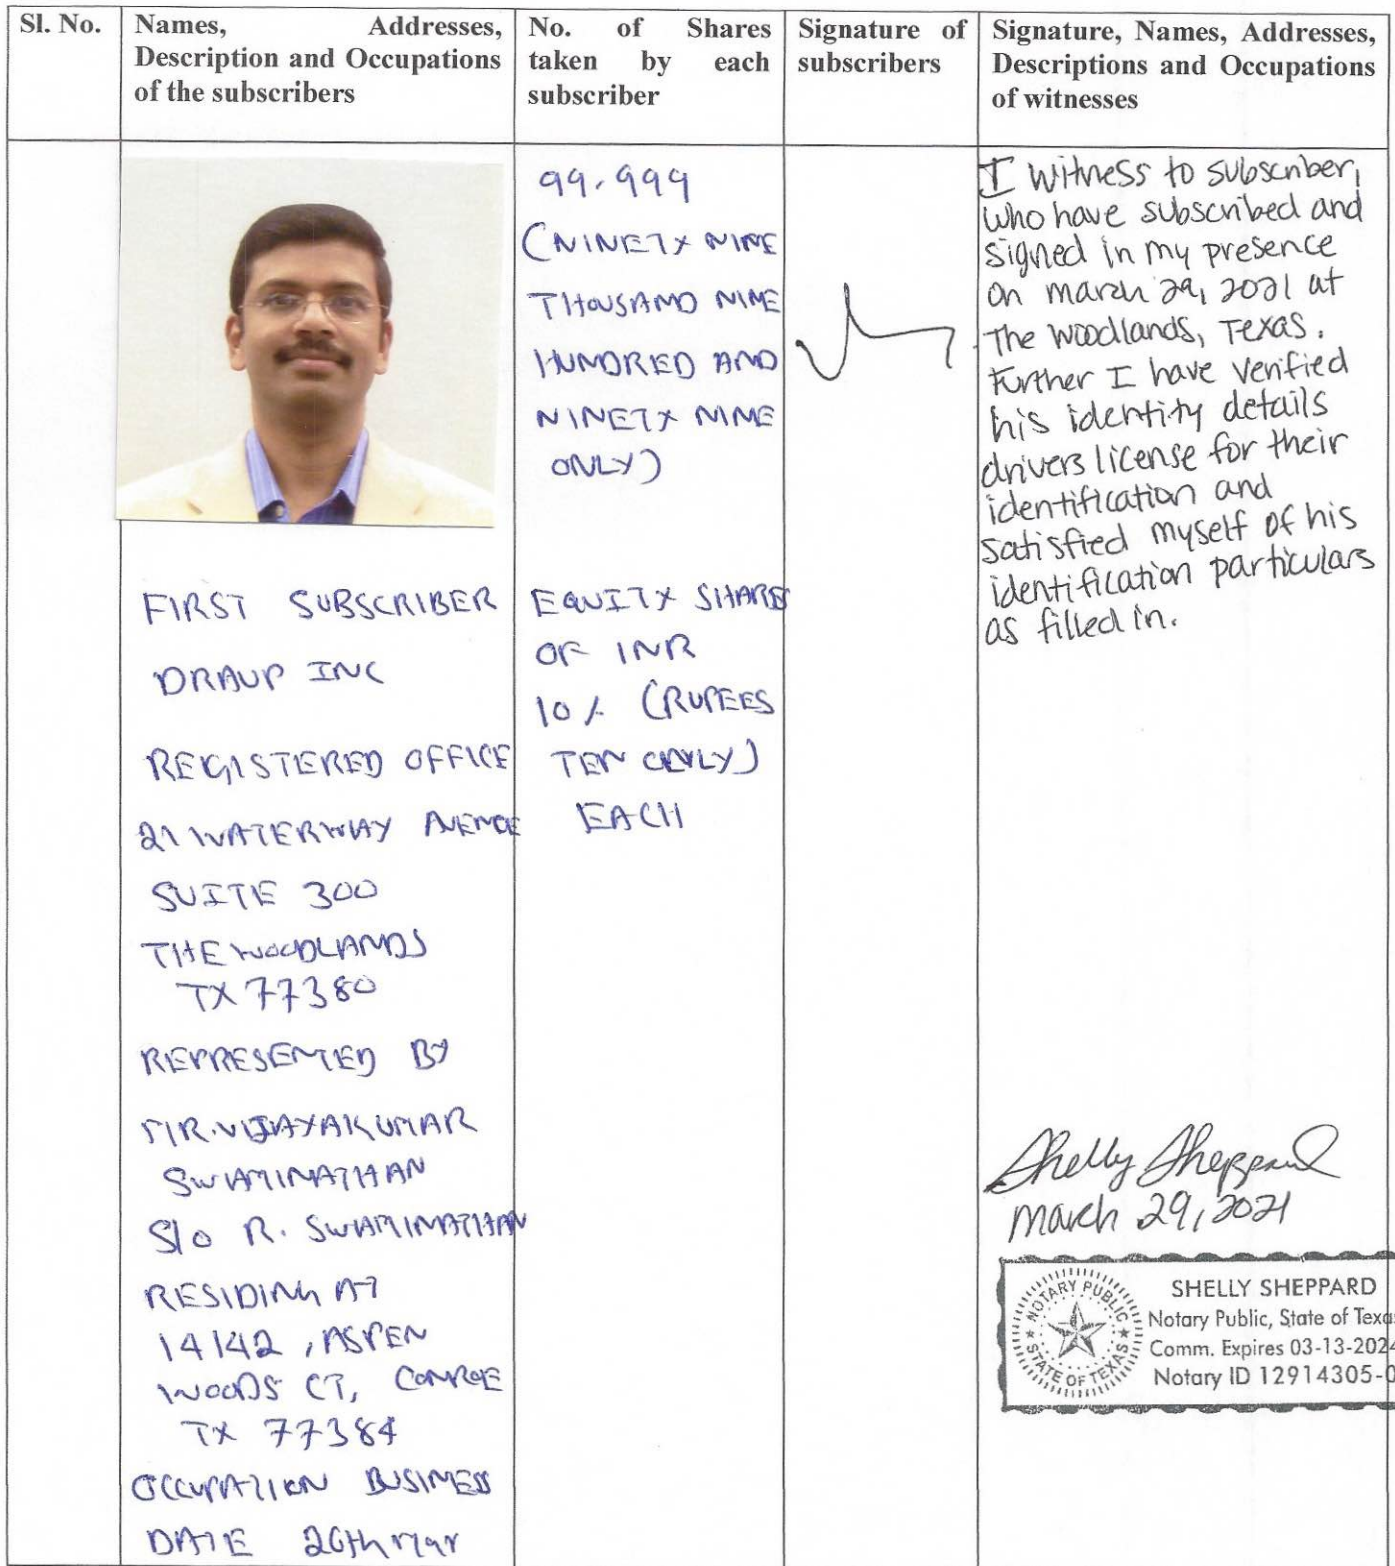 Sl. No.
Names, Addresses,
Description and Occupations
of the subscribers
No. of Shares
taken by each
subscriber
Signature of
subscribers
Signature, Names, Addresses,
Descriptions and Occupations
of witnesses
FIRST SUBSCRIBER
DRAUP INC
REGISTERED OFFICE
21 WATERWAY AVENUE
SUITE 300
THE WOODLANDS
TX 77380
REPRESENTED BY
MR. VIJAYAKUMAR
SWAMINATHAN
S/o R. SWAMINATHAN
RESIDING AT
14142, ASPEN
WOODS CT, CONROE
TX 77384
OCCUPATION BUSINESS
DATE 26th Mar
99,999
(NINETY NINE
THOUSAND NINE
HUNDRED AND
NINETY NINE
ONLY)
EQUITY SHARES
OF INR
10/- (RUPEES
TEN ONLY)
EACH
I witness to subscriber,
who have subscribed and
signed in my presence
on march 29, 2021 at
The woodlands, Texas.
Further I have verified
his identity details
drivers license for their
identification and
satisfied myself of his
identification particulars
as filled in.
Shelly Sheppard
March 29, 2021
NOTARY PUBLIC
STATE OF TEXAS
SHELLY SHEPPARD
Notary Public, State of Texas
Comm. Expires 03-13-2024
Notary ID 12914305-0